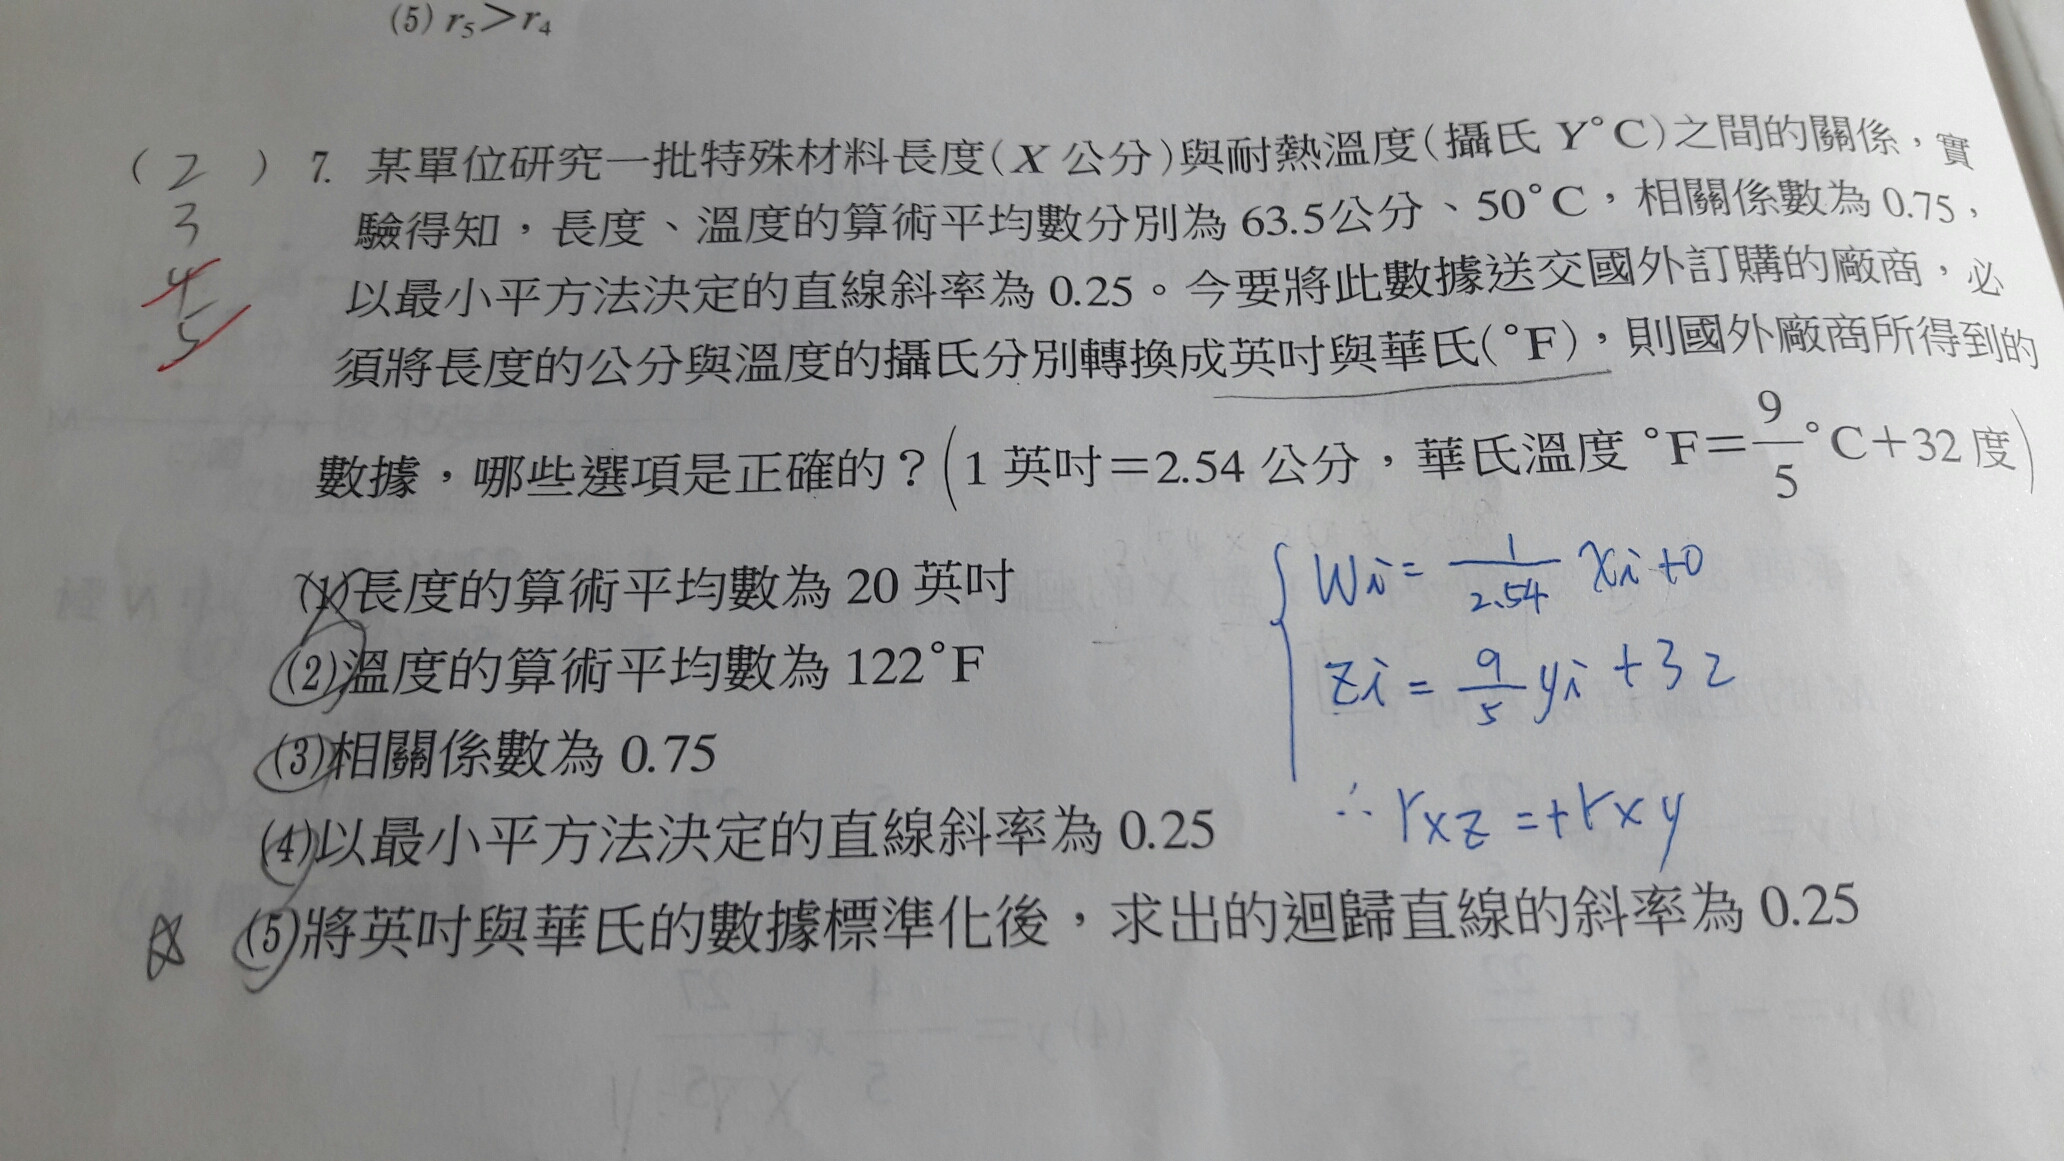 (5) r₅＞r₄
( 2 ) 7. 某單位研究一批特殊材料長度(X 公分)與耐熱溫度(攝氏 Y°C)之間的關係，實
3
驗得知，長度、溫度的算術平均數分別為 63.5公分、50°C，相關係數為 0.75，
4
以最小平方法決定的直線斜率為 0.25。今要將此數據送交國外訂購的廠商，必
5
須將長度的公分與溫度的攝氏分別轉換成英吋與華氏(°F)，則國外廠商所得到的
數據，哪些選項是正確的？(1 英吋＝2.54 公分，華氏溫度 °F＝9/5°C＋32 度)
(1)長度的算術平均數為 20 英吋
(2)溫度的算術平均數為 122°F
(3)相關係數為 0.75
(4)以最小平方法決定的直線斜率為 0.25
(5)將英吋與華氏的數據標準化後，求出的迴歸直線的斜率為 0.25
Wi = 1/2.54 xi + 0
Zi = 9/5 yi + 32
∴ rxz = + rxy